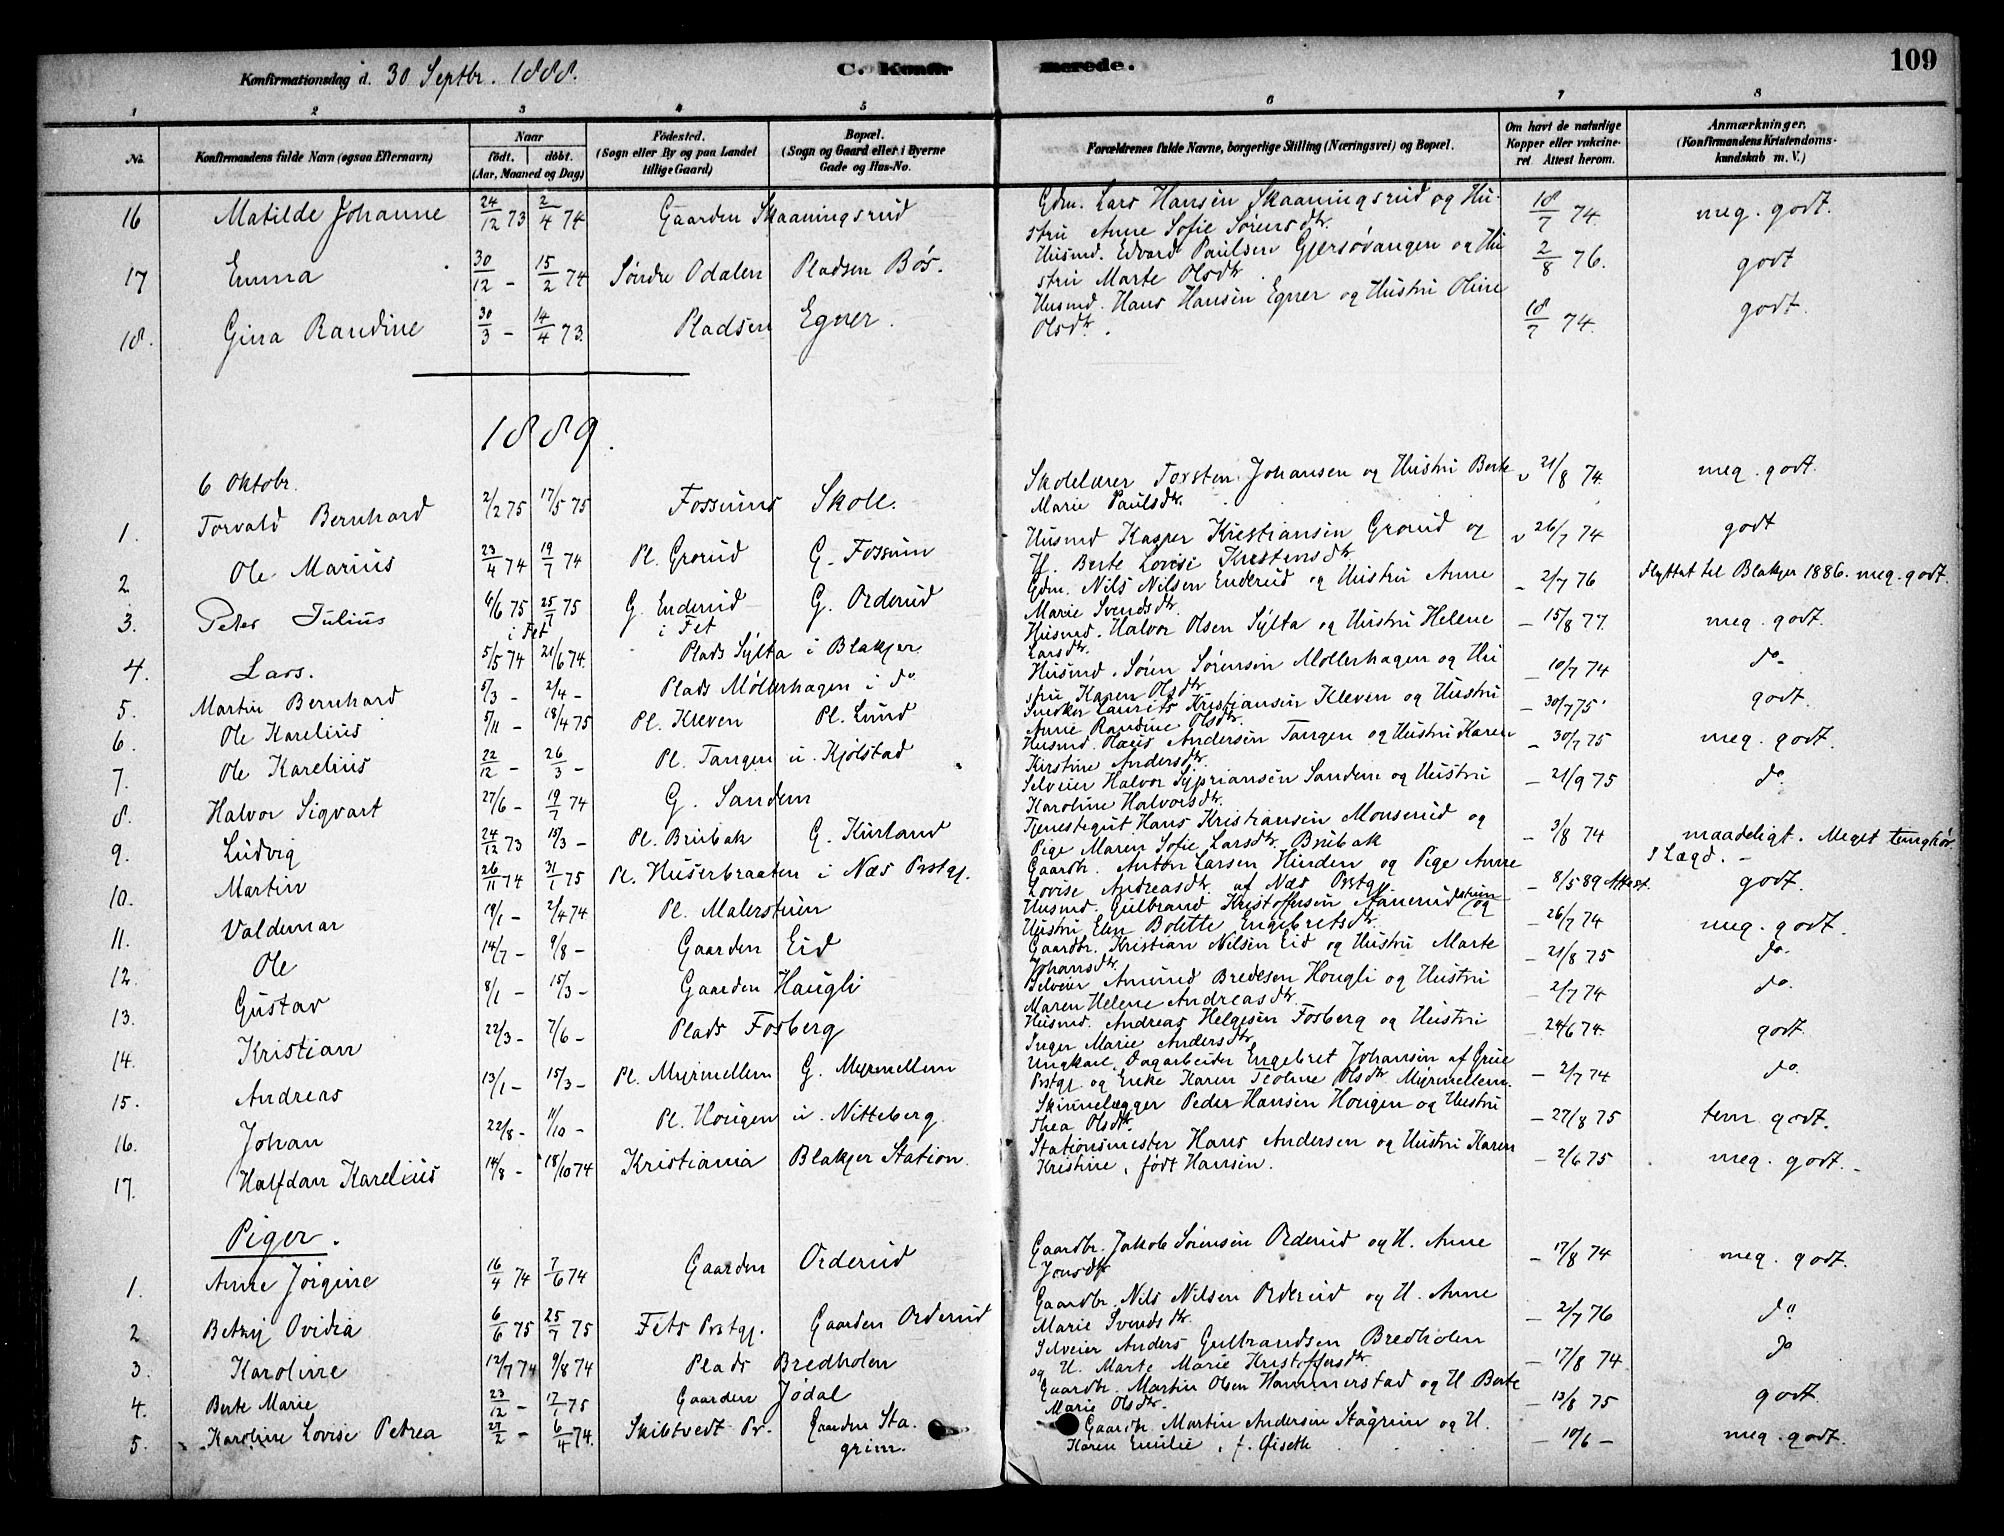 109
Konfirmationsdag d. 30 Septbr. 1888.
C. Konfir merede.
1 2 3 4 5 6 7 8
No. Konfirmandens fulde Navn (ogsaa Efternavn) Naar født. døbt. (Aar, Maaned og Dag) Fødested. (Sogn eller By og paa Landet tillige Gaard) Bopæl. (Sogn og Gaard eller i Byerne Gade og Hus-No. Forældrenes fulde Navne, borgerlige Stilling (Næringsvei) og Bopæl. Om havt de naturlige Kopper eller vakcineret. Attest herom. Anmærkninger. (Konfirmandens Kristendomskundskab m. V.)
16 Matilde Johanne 24/12 73 2/4 74 Gaarden Skaaningsrud Gdm. Lars Hansen Skaaningsrud og Hu-
strü Anne Sofie Sørensdtr. 18/7 74 meg. godt.
17 Emma 30/12 - 15/2 74 Søndre Odalen Pladsen Bøs. Husmd. Edvard Paulsen Gjersøvangen og Hu
strü Marte Olsdtr. 2/8 76. godt
18. Gina Randine 30/3 - 14/4 73. Pladsen Egner. Husmd. Hans Hansen Egner og Hustrü Oline
Olsdtr. 18/7 74. godt.
1889.
6 Oktobr.
1. Torvald Bernhard 2/2 75 17/5 75 Fossums Skole. Skolelærer Torsten Johansen og Hustrü Berte
Marie Paulsdtr. v 21/8 74. meg. godt.
2 Ole Marius 23/4 74 19/7 74 Pl. Grorud G. Fossum Husmd Kasper Kristiansen Grorud og
H. Berte Lovise Kristensdtr v 26/7 74 godt
3. Peter Julius 6/6 75 25/7 75 G. Enderud G. Orderud Gdm. Nils Nilsen Enderud og Hustrü Anne
i Fet i Fet Marie Svendsdtr. - 2/7 76 Flyttet til Blakjer 1886. meg. godt.
4. Lars. 5/5 74 21/6 74. Plads Sylta i Blakjer Husmd. Halvor Olsen Sylta og Hustrü Helene
Larsdtr. - 15/8 77. meg. godt.
5. Martin Bernhard 5/3 - 2/4 - Plads Møllerhagen i do Husmd. Søren Sørensen Møllerhagen og Hu
strü Karen Olsdtr. - 10/7 74 do-
6. Ole Karelius 5/11 - 18/4 75 Pl. Kleven Pl. Lund Snedker Laurits Kristiansen Kleven og Hustrü
Anne Randine Olsdtr. - 30/7 75 godt.
7. Ole Karelius 22/12 - 26/3 - Pl. Tangen u. Kjølstad Husmd. Andersen Tangen og Hustrü Karen
Kirstine Andersdtr. - 30/7 75 meg. godt.
8. Halvor Sigvart 27/6 - 19/7 74 G. Sandem Selveier Halvor Sypriansen Sandem og Hustrü
Karoline Halvorsdtr. - 21/9 75 do
9. Ludvig 24/12 73 15/3 - Pl. Brubak G. Kurland Tjenestegut Hans Kristiansen Monserud og
Pige Maren Sofie Larsdtr. Brubak - 3/8 74 maadeligt. Meget tunghør.
10. Martin 26/11 74 31/1 75 Pl. Huserbraaten i Næs Prstgj. Gaardbr. Anton Larsen Hinden og Pige Anne
Lovise Andreasdtr. af Næs Prstgj. - 8/5 89 Attest. I Lægd. - godt.
11. Valdemar 19/1 - 2/4 74 Pl. Malerstuen Husmd. Gulbrand Kristoffersen og
Hustrü Elen Bolette Engebretsdtr. - 26/7 74 meg. godt.
12. Ole 14/7 - 9/8 - Gaarden Eid Gaardbr. Kristian Nilsen Eid og Hustrü Marte
Johansdtr. - 21/8 75 do.
13. Gustav 8/1 - 15/3 - Gaarden Haugli Selveier Amund Bredesen Hougli og Hustrü
Maren Helene Andreasdtr. - 2/7 74 do.
14. Kristian 22/3 - 7/6 - Plads Fosberg Husmd. Andreas Helgesen Fosberg og Hustrü
Inger Marie Andersdtr. - 24/6 74. godt
15. Andreas 13/1 - 15/3 - Pl. Myrmellem G. Myrmellem Ungkarl, Dagarbeider Engebret Johansen af Grue
Prstgj. og Enke Karen Teoline Olsdtr Myrmellem. - 2/7 74 do.
16. Johan 22/8 - 11/10 - Pl. Hougen u. Nitteberg. Skinnelægger Peder Hansen Hougen og Hustrü
Thea Olsdtr. - 27/8 75 tem godt.
17. Halfdan Karelius 14/8 - 18/10 74 Kristiania Blakjer Station. Stationsmester Hans Andersen og Hustrü Karen
Kristine, født Hansen. - 2/6 75 meg. godt. -
Piger.
1. Anne Jørgine 16/4 74 7/6 74 Gaarden Orderud Gaardbr. Jakob Sørensen Orderud og H. Anne
Jonsdtr. - 17/8 74 meg. godt.
2 Betsy Ovidia 6/6 75 25/7 75 Fets Prstgj. Gaarden Orderud Gaardbr. Nils Nilsen Orderud og H. Anne
Marie Svendsdtr. - 2/7 76 do
3. Karoline 12/7 74 9/8 74 Plads Bredholen Selveier Anders Gulbrandsen Bredholen
og H. Marte Marie Kristoffersdtr. - 17/8 74 do
4. Berte Marie 23/12 - 17/1 75 Gaarden Jødal Gaardbr. Martin Olsen Hammerstad og H Berte
Marie Olsdtr. - 13/8 75 godt.
5. Karoline Lovise Petrea 27/2 - 6/4 74. Skibtvedt Pr. Gaarden Sta
grim. Gaardbr. Martin Andersen Stagrim og H.
Karen Emilie, f. Øiseth - 10/6 - meg. godt.